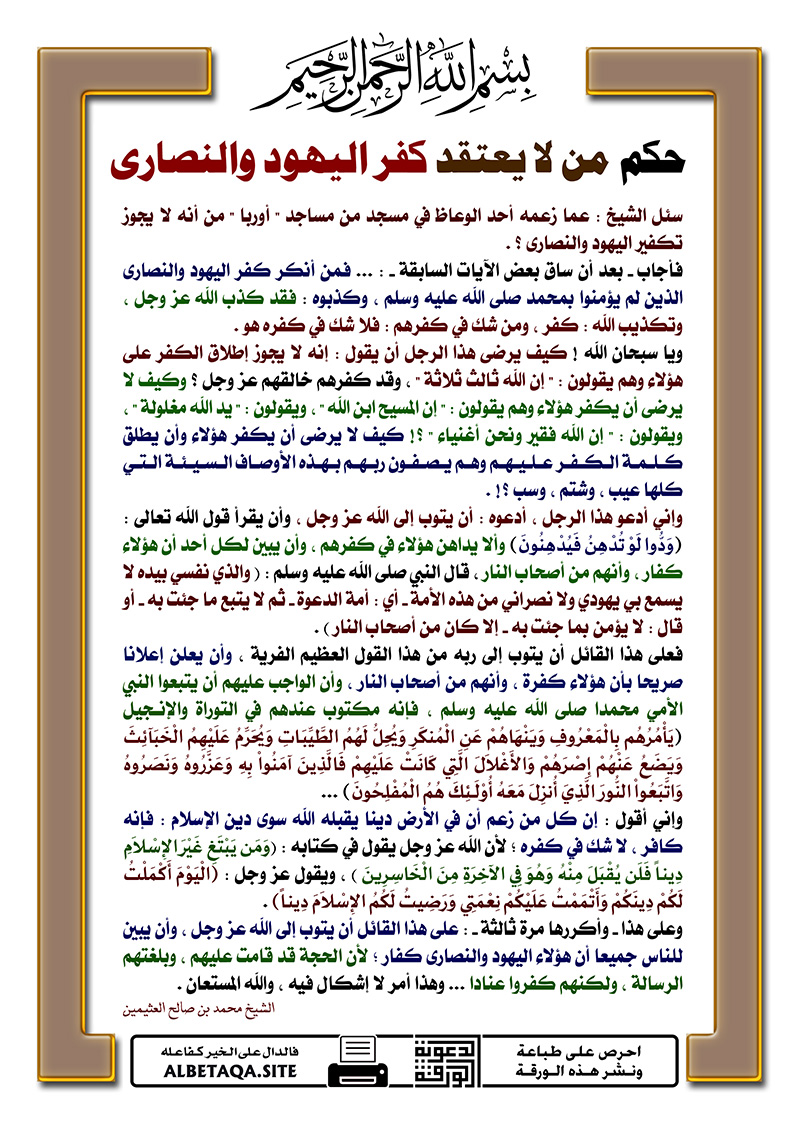 بسم الله الرحمن الرحيم
حكم من لا يعتقد كفر اليهود والنصارى
سئل الشيخ : عما زعمه أحد الوعاظ في مسجد من مساجد " أوربا " من أنه لا يجوز
تكفير اليهود والنصارى ؟ .
فأجاب ـ بعد أن ساق بعض الآيات السابقة ـ : ... فمن أنكر كفر اليهود والنصارى
الذين لم يؤمنوا بمحمد صلى الله عليه وسلم ، وكذبوه : فقد كذب الله عز وجل ،
وتكذيب الله : كفر ، ومن شك في كفرهم : فلا شك في كفره هو .
ويا سبحان الله ! كيف يرضى هذا الرجل أن يقول : إنه لا يجوز إطلاق الكفر على
هؤلاء وهم يقولون : " إن الله ثالث ثلاثة " ، وقد كفرهم خالقهم عز وجل ؟ وكيف لا
يرضى أن يكفر هؤلاء وهم يقولون : " إن المسيح ابن الله " ، ويقولون : " يد الله مغلولة " ،
ويقولون : " إن الله فقير ونحن أغنياء " ؟! كيف لا يرضى أن يكفر هؤلاء وأن يطلق
كلمة الكفر عليهم وهم يصفون ربهم بهذه الأوصاف السيئة التي
كلها عيب ، وشتم ، وسب ؟! .
وإني أدعو هذا الرجل ، أدعوه : أن يتوب إلى الله عز وجل ، وأن يقرأ قول الله تعالى :
(وَدُّوا لَوْ تُدْهِنُ فَيُدْهِنُونَ) وألا يداهن هؤلاء في كفرهم ، وأن يبين لكل أحد أن هؤلاء
كفار ، وأنهم من أصحاب النار ، قال النبي صلى الله عليه وسلم : ( والذي نفسي بيده لا
يسمع بي يهودي ولا نصراني من هذه الأمة ـ أي : أمة الدعوة ـ ثم لا يتبع ما جئت به ـ أو
قال : لا يؤمن بما جئت به ـ إلا كان من أصحاب النار ) .
فعلى هذا القائل أن يتوب إلى ربه من هذا القول العظيم الفرية ، وأن يعلن إعلانا
صريحا بأن هؤلاء كفرة ، وأنهم من أصحاب النار ، وأن الواجب عليهم أن يتبعوا النبي
الأمي محمدا صلى الله عليه وسلم ، فإنه مكتوب عندهم في التوراة والإنجيل
(يَأْمُرُهُم بِالْمَعْرُوفِ وَيَنْهَاهُمْ عَنِ الْمُنكَرِ وَيُحِلُّ لَهُمُ الطَّيِّبَاتِ وَيُحَرِّمُ عَلَيْهِمُ الْخَبَآئِثَ
وَيَضَعُ عَنْهُمْ إِصْرَهُمْ وَالأَغْلاَلَ الَّتِي كَانَتْ عَلَيْهِمْ فَالَّذِينَ آمَنُواْ بِهِ وَعَزَّرُوهُ وَنَصَرُوهُ
وَاتَّبَعُواْ النُّورَ الَّذِيَ أُنزِلَ مَعَهُ أُوْلَـئِكَ هُمُ الْمُفْلِحُونَ) ...
وإني أقول : إن كل من زعم أن في الأرض دينا يقبله الله سوى دين الإسلام : فإنه
كافر ، لا شك في كفره ؛ لأن الله عز وجل يقول في كتابه : (وَمَن يَبْتَغِ غَيْرَ الإِسْلاَمِ
دِيناً فَلَن يُقْبَلَ مِنْهُ وَهُوَ فِي الآخِرَةِ مِنَ الْخَاسِرِينَ ) ، ويقول عز وجل : (الْيَوْمَ أَكْمَلْتُ
لَكُمْ دِينَكُمْ وَأَتْمَمْتُ عَلَيْكُمْ نِعْمَتِي وَرَضِيتُ لَكُمُ الإِسْلاَمَ دِيناً) .
وعلى هذا ـ وأكررها مرة ثالثة ـ : على هذا القائل أن يتوب إلى الله عز وجل ، وأن يبين
للناس جميعا أن هؤلاء اليهود والنصارى كفار ؛ لأن الحجة قد قامت عليهم ، وبلغتهم
الرسالة ، ولكنهم كفروا عنادا ... وهذا أمر لا إشكال فيه ، والله المستعان .
الشيخ محمد بن صالح العثيمين
احرص على طباعة
ونشر هذه الورقة
الدعوية
الورقة
فالدال على الخير كفاعله
ALBETAQA.SITE